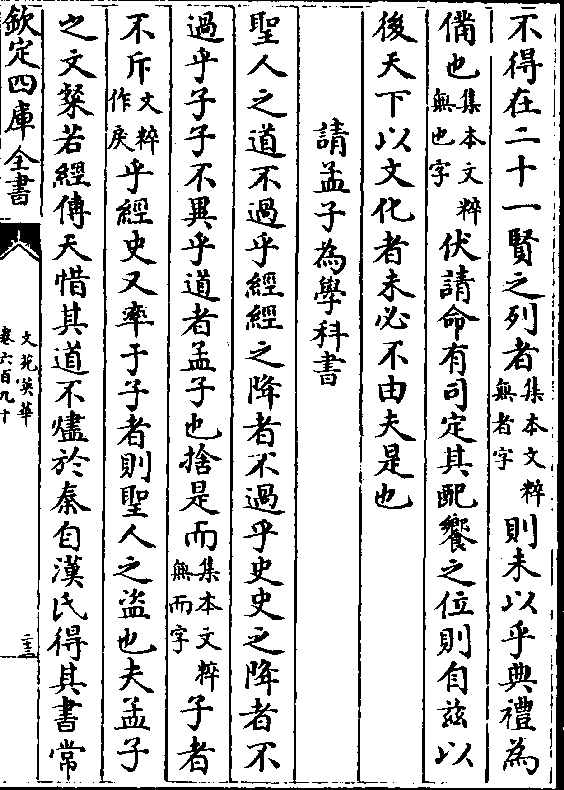 不得在二十一賢之列者集本文粹無者字則未以乎典禮為
備也集本文粹無也字伏請命有司定其配饗之位則自茲以
後天下以文化者未必不由夫是也
請孟子為學科書
聖人之道不過乎經經之降者不過乎史史之降者不
過乎子子不異乎道者孟子也捨是而集本文粹無而字子者
不斥文粹作戾乎經史又率于子者則聖人之盜也夫孟子
之文粲若經傳天惜其道不燼於秦自漢氏得其書常
欽定四庫全書
文苑英華
卷六百九十
二十三